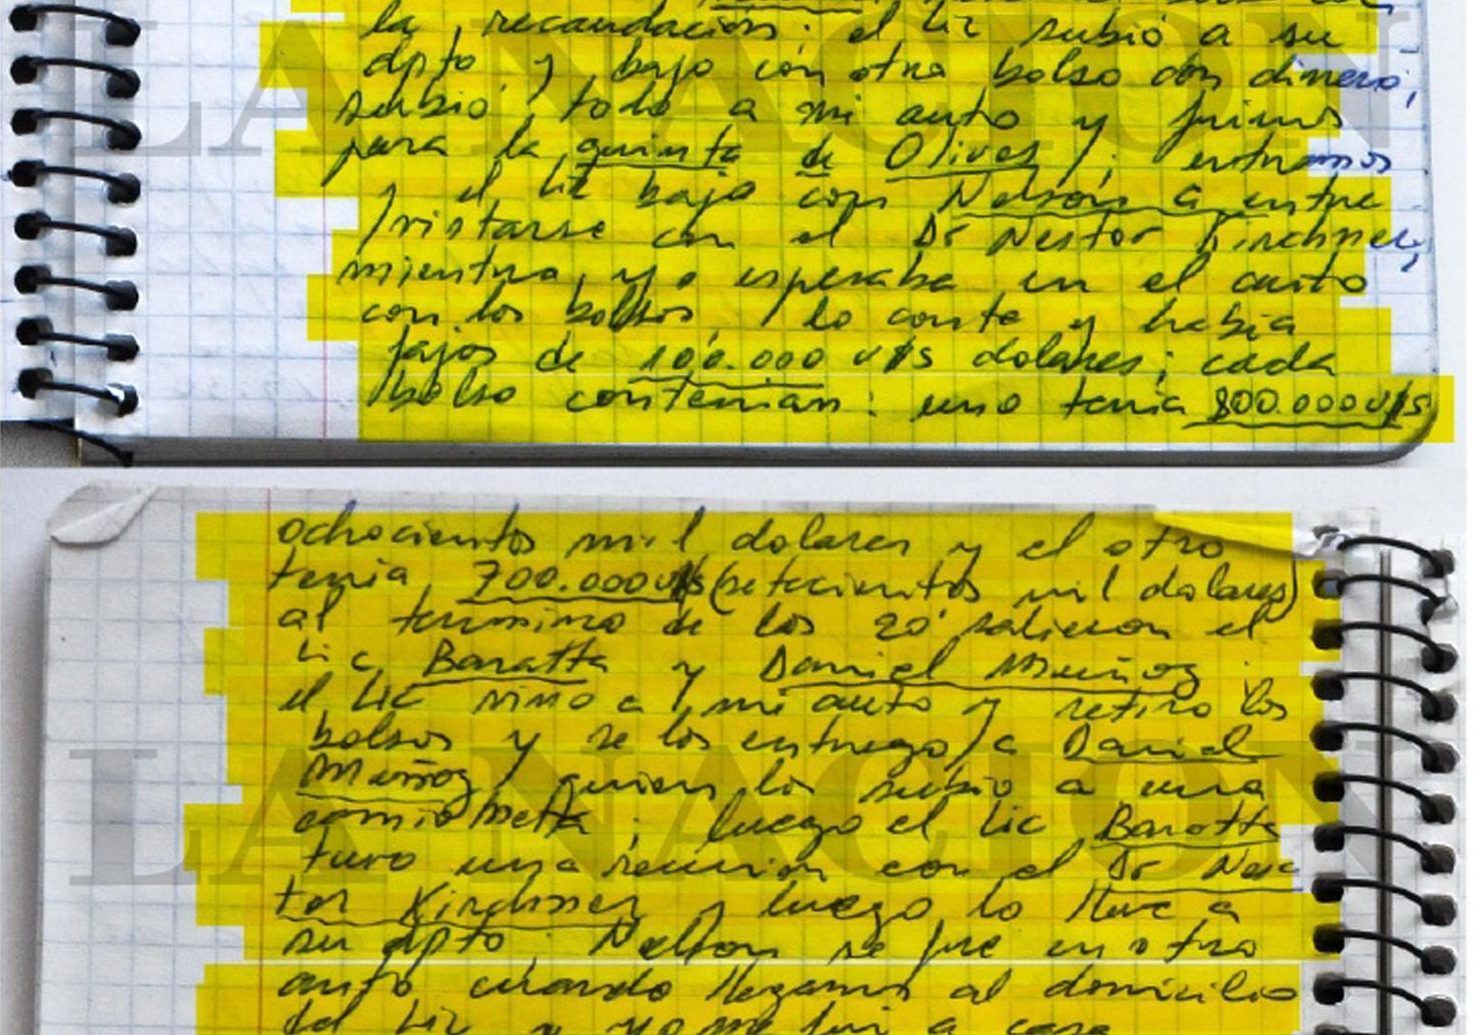 la recaudacion; el Lic subió a su
dpto y bajo con otro bolso con dinero,
subio todo a mi auto y fuimos
para la quinta de Olivos; entramos
y el Lic bajo con Nelson a entre
vistarse con el Dr Nestor Kirchner,
mientra yo esperaba en el auto
con los bolsos, lo conte y habia
fajos de 100.000 U$S dolares; cada
bolso contenian: uno tenia 800.000 U$S
ochocientos mil dolares y el otro
tenia 700.000 U$S (setecientos mil dolares)
al termino de los 20' salieron el
Lic Baratta y Daniel Muñoz
el Lic vino a mi auto y retiro los
bolsos y se los entrego a Daniel
Muñoz, quien los subio a una
camioneta; luego el Lic Baratta
tuvo una reunion con el Dr Nes
tor Kirchner y luego lo lleve a
su dpto. Nelson se fue en otro
auto cuando llegamos al domicilio
del Lic y yo me fui a casa
LA NACION
LA NACION